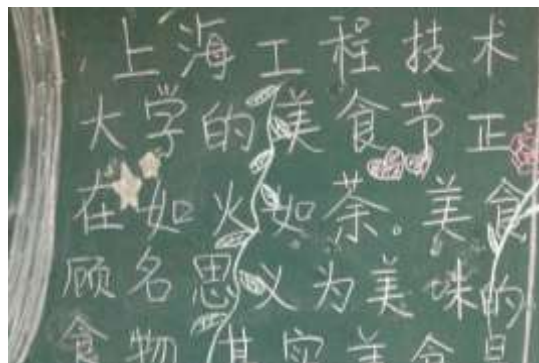 上海工程技术
大学的美食节正
在如火如荼。美食
顾名思义为美味的
食物其实美食是